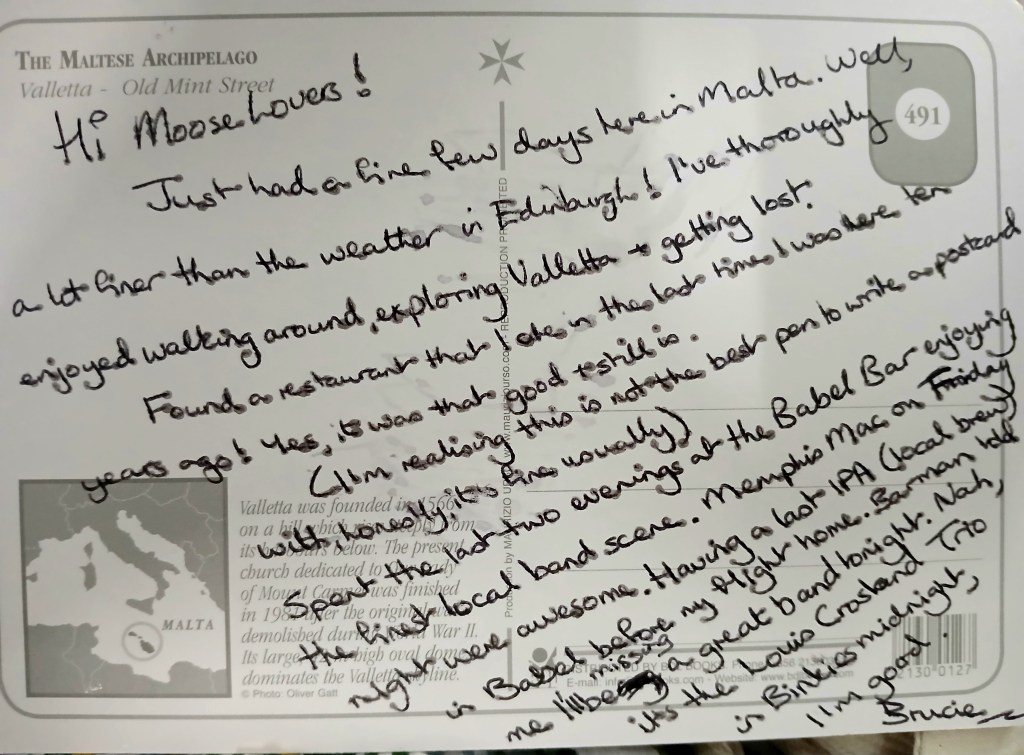 THE MALTESE ARCHIPELAGO
Valletta - Old Mint Street
491
Hi Moose Lovers!
Just had a fine few days here in Malta. Well,
a lot finer than the weather in Edinburgh! I've thoroughly
enjoyed walking around, exploring Valletta + getting lost.
Found a restaurant that I ate in the last time I was here ten
years ago! Yes, it was that good + still is.
(I'm realising this is not the best pen to write a postcard
with honestly, it's fine usually)
Spent the last two evenings at the Babel Bar enjoying
the finest local band scene. Memphis Mac on Friday
night were awesome. Having a last IPA (local brew)
in Babel before my flight home. Barman told
me I'll be missing a great band tonight. Nah,
it's the Louis Crosland Trio
in Binkies midnight,
I'm good.
Brucie
Valletta was founded in 1566
on a hill which
its below. The present
church dedicated to
of Mount was finished
in 198 after the original
demolished War II.
Its large high oval dome
dominates the Valletta
© Photo: Oliver Gatt
MALTA
REPRODUCTION
BOOKS
E-mail: Website:
2130-0127